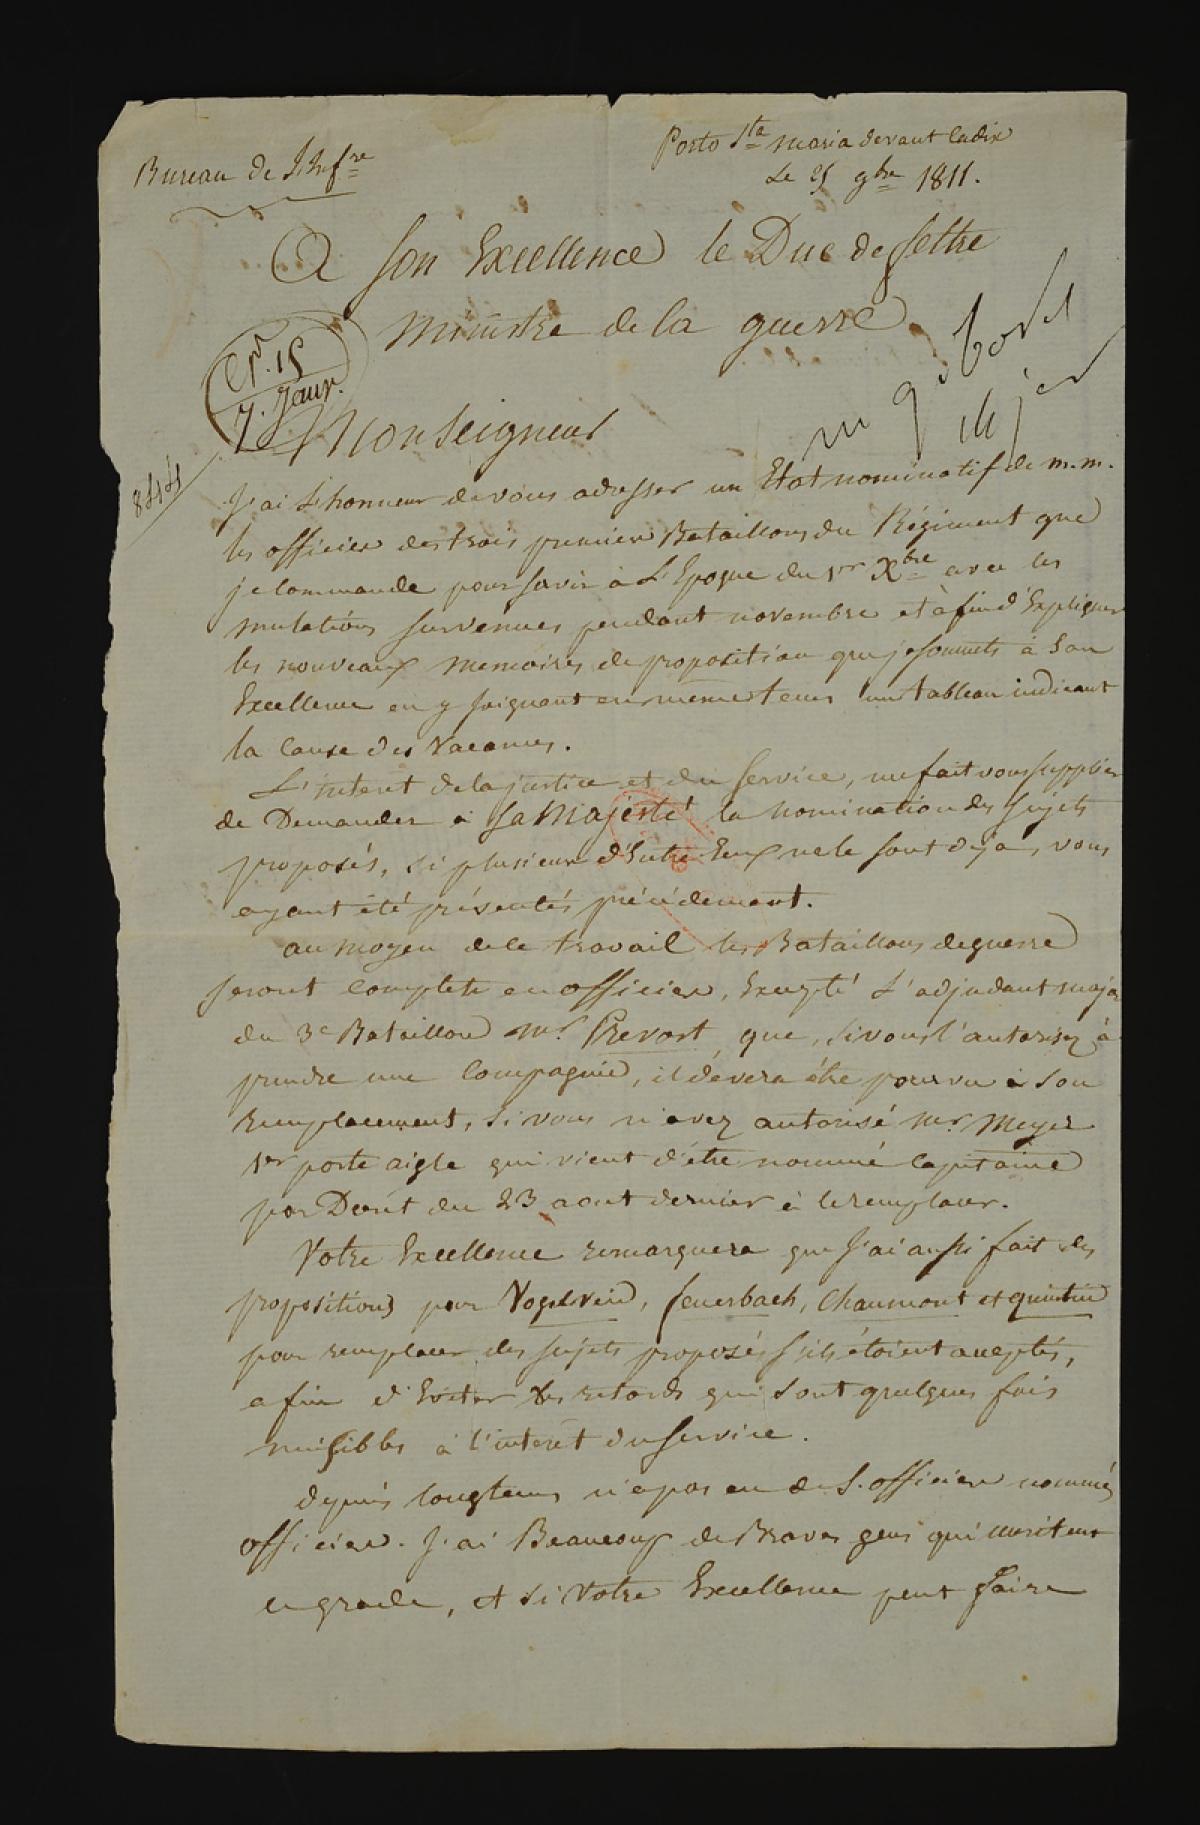 Porto Sta Maria devant Cadix
Bureau de L'Infre
Le 25 9bre 1811.
A Son Excellence le Duc de feltre
Ministre de la guerre
Cn. 15
7. Janv.
Monseigneur
844
J'ai L'honneur de vous adresser un Etat nominatif de m.m.
les officiers des trois premiers Bataillons du Régiment que
je Commande pour servir à L'Epoque du 1er Xbre avec les
mutations survenues pendant novembre et à fin d'Expliquer
les nouveaux memoires de proposition que je soumets à Son
Excellence en y joignant en même tems un tableau indicant
la Cause des Vacances.
L'interet de la justice et du Service, me fait vous supplier
de Demander à Sa Majesté la nomination des Sujets
proposés, si plusieurs d'Entre Eux ne le sont deja, vous
ayant été présentés précédement.
au moyen de ce travail les Bataillons de guerre
seront complets en officiers, Excepté L'adjudant major
du 3e Bataillon Mr. Prevost, que, si vous l'autorisez à
prendre une Compagnie, il devera être pourvu à son
remplacement, si vous n'avez autorisé Mr. Meyer
1er porte aigle qui vient d'être nommé Capitaine
par Decrêt du 23 aout dernier à le remplacer.
Votre Excellence remarquera que J'ai aussi fait des
propositions pour Vogelvein, feuerbach, Chaumont et quintin
pour remplacer des sujets proposés s'ils étoient acceptés,
afin d'Eviter les retards qui sont quelques fois
nuisibles à l'interêt du Service.
depuis longtems n'a pas eu de S. officiers nommés
officiers. J'ai Beaucoup de Braves gens qui meritent
ce grade, et si Votre Excellence peut faire